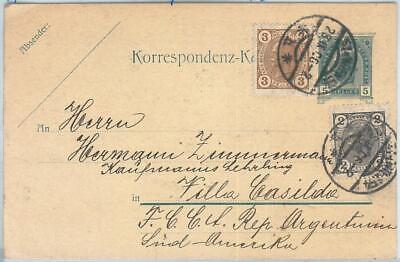 Absender:
Korrespondenz-K
3 3
HELLER
5 5
2 2
An Herrn
Hermann Zimmermann
Kaufmannslehrling
in Villa Casilda
F. C. C. A. Rep. Argentinien
Süd-Amerika